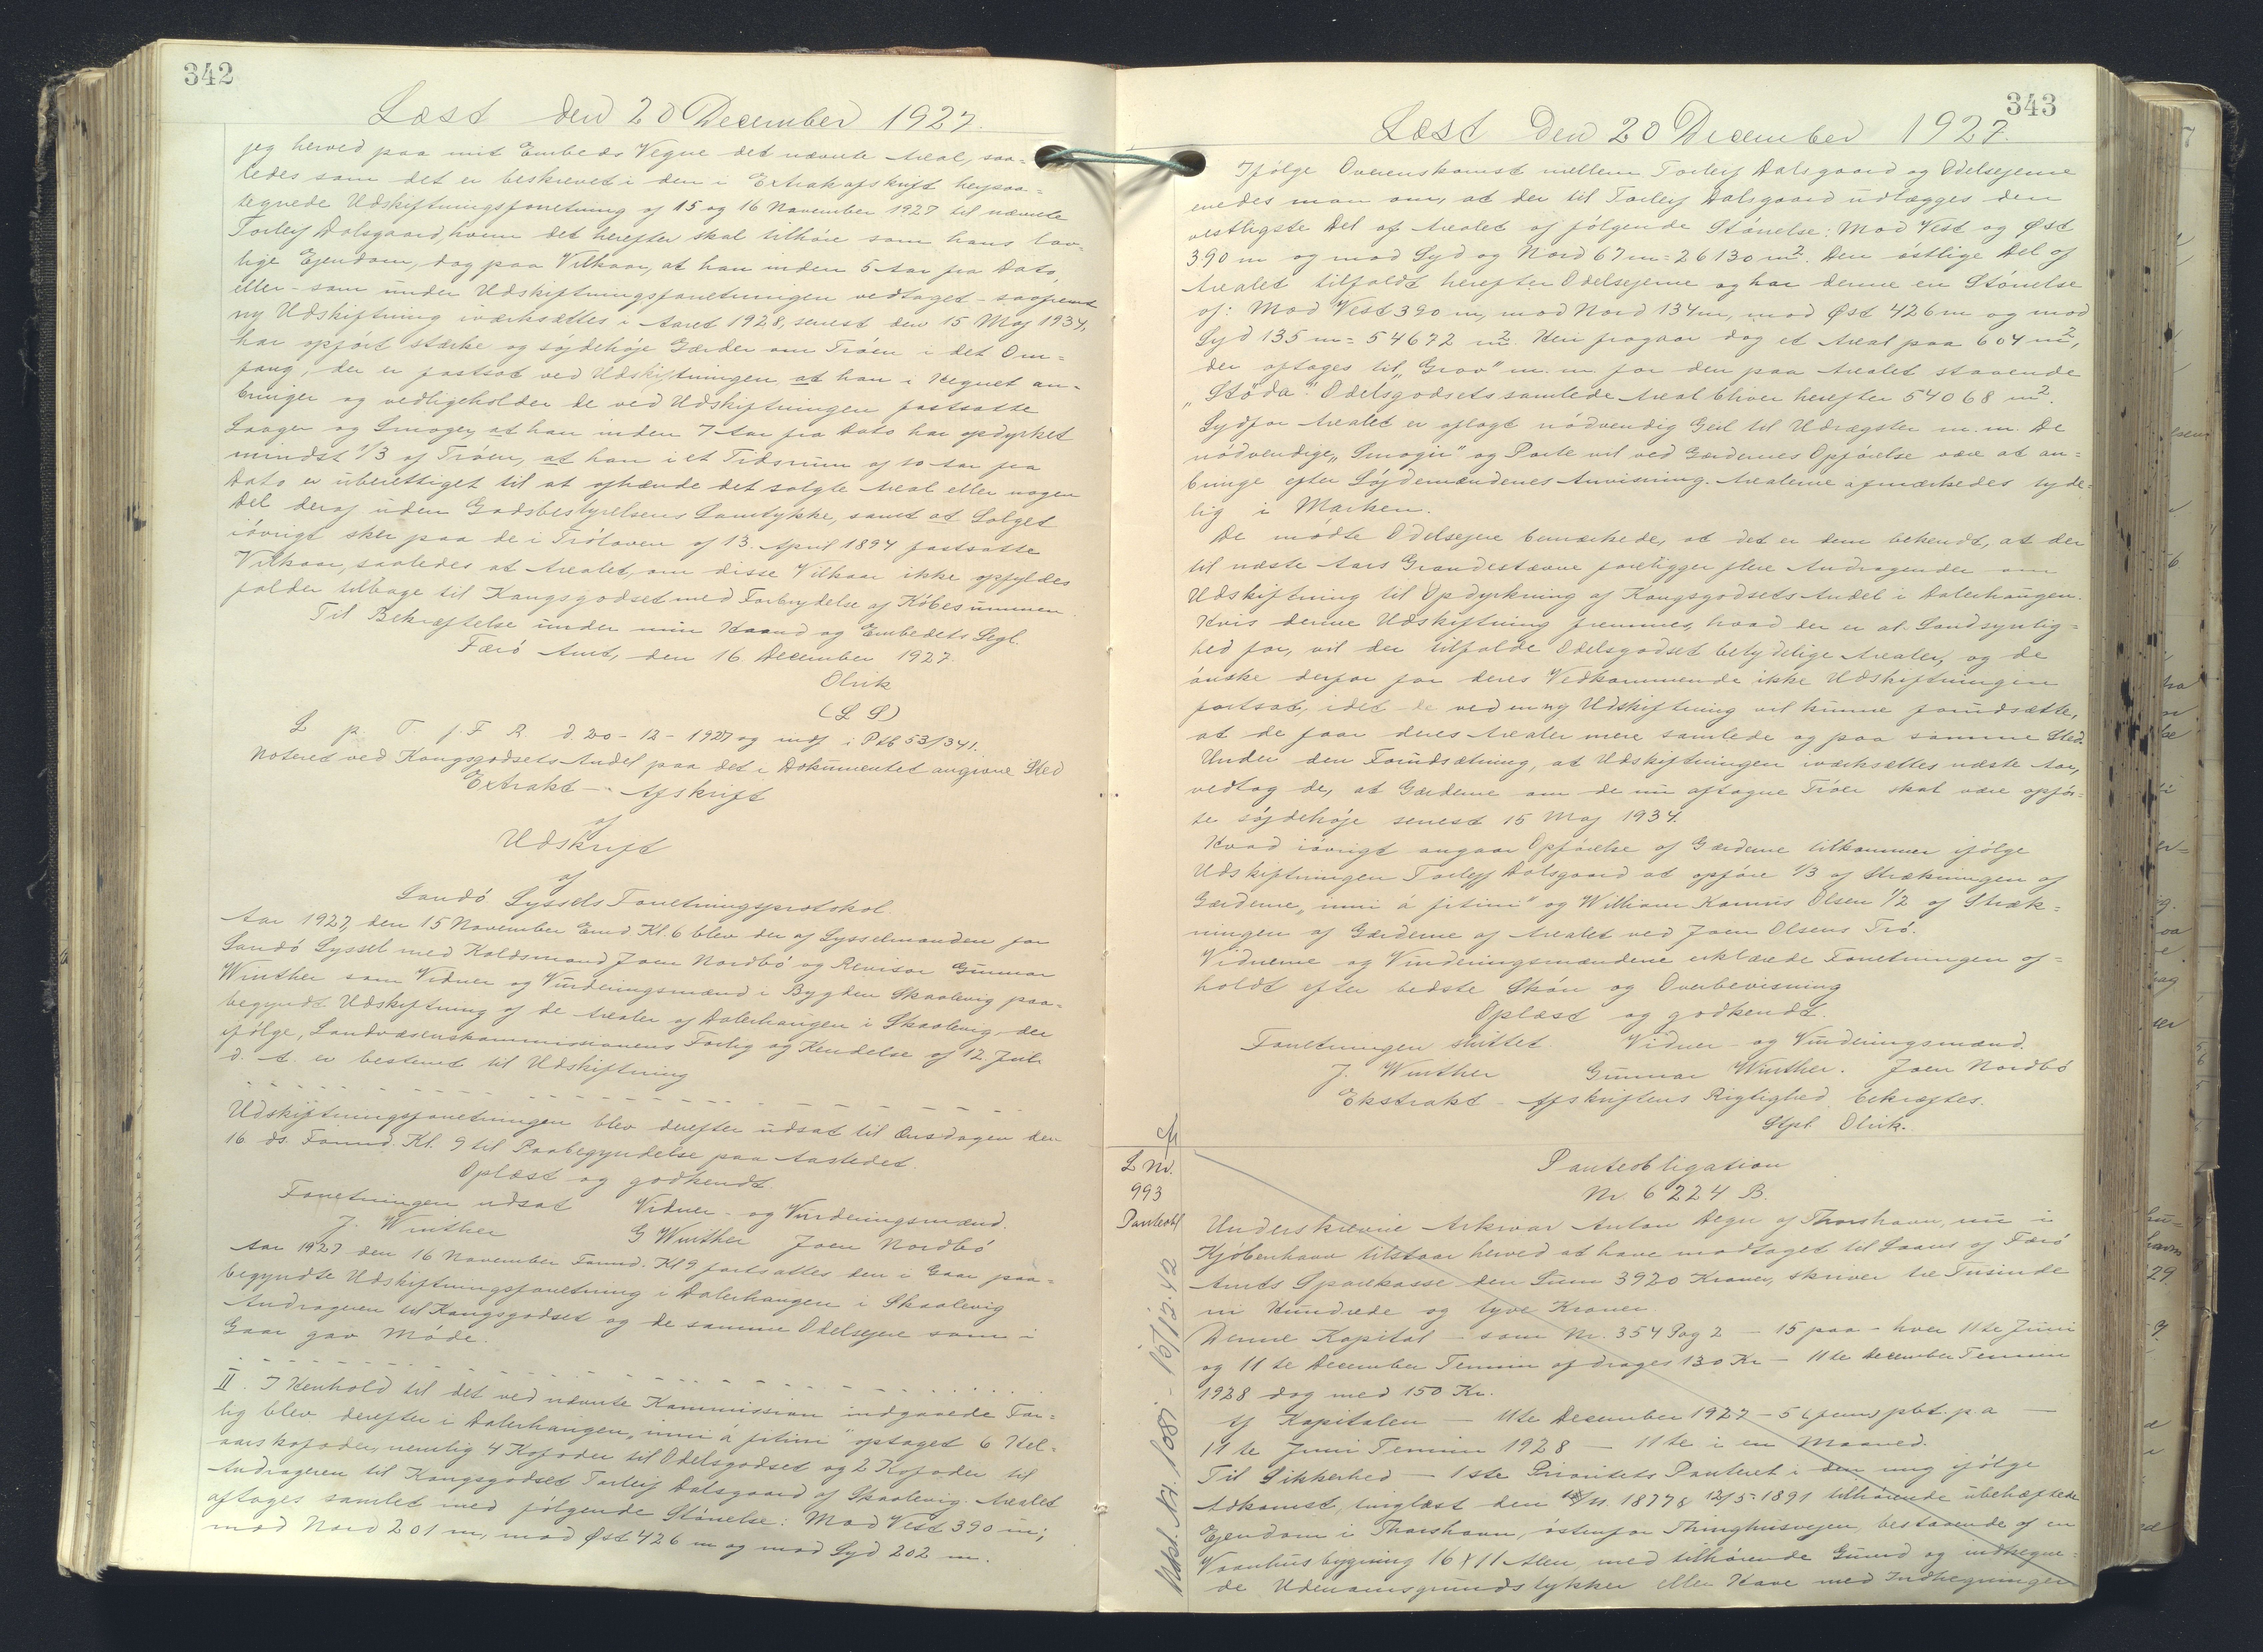 342
Læst den 20 December 1927.
jeg herved paa mit Embeds Vegne det nævnte Areal, saa-
ledes som det er beskrevet i den i Extrakafskrift heftaa-
tegnede Udskiftningsforretning af 15 og 16 November 1927 til nævnte
Torleif Dalsgaard, hvem det herefter skal tilhøre som hans lov-
lige Ejendom, dog paa Vilkaar, at han inden 5 Aar fra Dato,
eller - som under Udskiftningsforretningen vedtaget - saafremt
ny Udskiftning iværksættes i Aaret 1928, senest den 15 Maj 1934,
har opført stærke og söjdehöje Gærder om Tröen i det Om-
fang, der er fastsat ved Udskiftningen, at han i Hegnet an-
bringer og vedligeholder de ved Udskiftningen fastsatte
Laager og Smoger, at han inden 7 Aar fra Dato har opdyrket
mindst 1/3 af Tröen, at han i et Tidsrum af 10 Aar fra
Dato er uberettiget til at afhænde det solgte Areal eller nogen
Del deraf uden Godsbestyrelsens Samtykke, samt at Salget
iövrigt sker paa de i Trölaven af 13. April 1894 fastsatte
Vilkaar, saaledes at Arealet, om disse Vilkaar ikke opfyldes
falder tilbage til Kongsgodset med Fortrydelse af Köbesummen.
Til Bekræftelse under min Haand og Embedets Segl.
Færö Amt, den 16 December 1927.
Olrik
(L S)
L p. T. f. F R. d. 20-12-1927 og indf i Ptb 53/341.
Noteret ved Kongsgodsets Andel paa det i Dokumentet angivne Sted
Extrakt - Afskrift
af
Udskrift
af
Sandö Syssels Forretningsprotokol
Aar 1927, den 15 November Emd Kl. 6 blev der af Sysselmanden for
Sandö Syssel med Holdsmand Joen Nordbö og Revisor Gunnar
Winther som Vidner og Vurderingsmænd i Bygden Skaalevig paa-
begyndt Udskiftning af de Arealer af Dalerhaugen i Skaalevig, der
ifölge, Landvæsenskommissionens Forlig og Kendelse af 12. Juli
d. A. er bestemt til Udskiftning
- - - - - - - - - - - - - - - -
Udskiftningsforretningen blev derefter udsat til Onsdagen den
16 ds. Formd. Kl. 9 til Paabegyndelse paa Aastedet
Oplæst og godkendt
Forretningen udsat Vidner - og Vurderingsmænd.
J. Winther G Winther Joen Nordbö
Aar 1927 den 16 November Formd. Kl 9 fortsattes den i Gaar paa-
begyndte Udskiftningsforretning i Dalerhaugen i Skaalevig
Andrageren til Kongsgodset og de samme Odelsejere som i
Gaar gav Møde.
- - - - - - - - - - - - - - - -
II. I Henhold til det ved nævnte Kommission indgaaede For-
lig blev derefter i Dalerhaugen „inni á fitini" optaget 6 Hel-
aarskofoder, nemlig 4 Kofoder til Odelsgodset og 2 Kofoder til
Andrageren til Kongsgodset Torleif Dalsgaard af Skaalevig. Arealet
aftages samlet med følgende Störrelse: Mod Vest 390 m;
mod Nord 201 m, mod Øst 426 m og mod Syd 202 m.
343
Læst den 20 December 1927.
Ifølge Overenskomst mellem Torleif Dalsgaard og Odelsejerne
enedes man om, at der til Torleif Dalsgaard udlægges den
vestligste Del af Arealet af følgende Störrelse: Mod Vest og Øst
390 m og mod Syd og Nord 67 m = 26130 m². Den östlige Del af
Arealet tilfaldt herefter Odelsejerne og har denne en Störrelse
af: Mod Vest 390 m, mod Nord 134 m, mod Øst 426 m og mod
Syd 135 m = 54672 m². Heri fragaar dog et Areal paa 604 m²,
der aftages til „Grov" m. m. for den paa Arealet staaende
„Stöda". Odelsgodsets samlede Areal bliver herefter 54068 m².
Sydfor Arealet er aflagt nödvendig Geil til Udrægster m. m. De
nödvendige „Smogir" og Porte vil ved Gærdernes Opførelse være at an-
bringe efter Söjdemændenes Anvisning. Arealerne afmærkedes tyde-
lig i Marken.
De mødte Odelsejere bemærkede, at det er dem bekendt, at der
til næste Aars Grandestævne foreligger flere Andragender om
Udskiftning til Opdyrkning af Kongsgodsets Andel i Dalerhaugen.
Hvis denne Udskiftning fremmes, hvad der er al Sandsynlig-
hed for, vil der tilfalde Odelsgodset betydelige Arealer, og de
önske derfor for deres Vedkommende ikke Udskiftningen
fortsat, idet de ved en ny Udskiftning vil kunne forudsætte,
at de faar deres Arealer mere samlede og paa samme Sted.
Under den Forudsætning, at Udskiftningen iværksættes næste Aar,
vedtog de, at Gærderne om de nu aftagne Tröer skal være opför-
te söjdehöje senest 15 Maj 1934.
Hvad iövrigt angaar Opförelse af Gærderne tilkommer ifölge
Udskiftningen Torleif Dalsgaard at opföre 1/3 af Strækningen af
Gærderne „inni á fitini" og William Hannis Olsen 1/2 af Stræk-
ningen af Gærderne af Arealet ved Joen Olsens Trö.
Vidnerne og Vurderingsmændene erklærede Forretningen af-
holdt efter bedste Skön og Overbevisning
Oplæst og godkendt.
Forretningen sluttet. Vidner - og Vurderingsmænd.
J. Winther Gunnar Winther. Joen Nordbö
Ekstrakt - Afskriftens Rigtighed bekræftes.
Stpl Olrik.
L Nr.
993
Panteobl
Panteobligation
Nr. 6224 B.
Underskrevne Arkivar Anton Degn af Thorshavn, nu i
Kjöbenhavn tilstaar herved at have modtaget til Laans af Færö
Amts Sparekasse den Sum 3920 Kroner, skriver tre Tusinde
ni Hundrede og tyve Kroner.
Denne Kapital - som Nr. 354 Pag 2 - 15 paa - hver 11te Juni
og 11te December Termin afdrages 130 Kr - 11te December Termin
1928 dog med 150 Kr.
Af Kapitalen - 11te December 1927 - 5 (fem) pCt. p. a -
11te Juni Termin 1928 - 11te i en Maaned.
Til Sikkerhed - 1ste Prioritets Panteret i den mig ifölge
Adkomst, tinglæst den 1877 & 12/5-1891 tilhörende ubehæftede
Ejendom i Thorshavn, östenfor Thinghusvejen, bestaaende af en
Vaanhusbygning 16 x 11 Alen med tilhörende Grund og indhegne-
de Udenomsgrundstykker eller Have med Indhegninger
Udsl. Nr. 1081 - 15/12.42